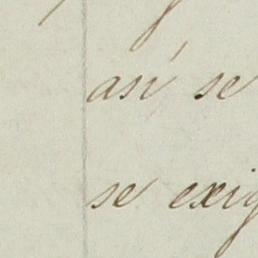 así se
se exig